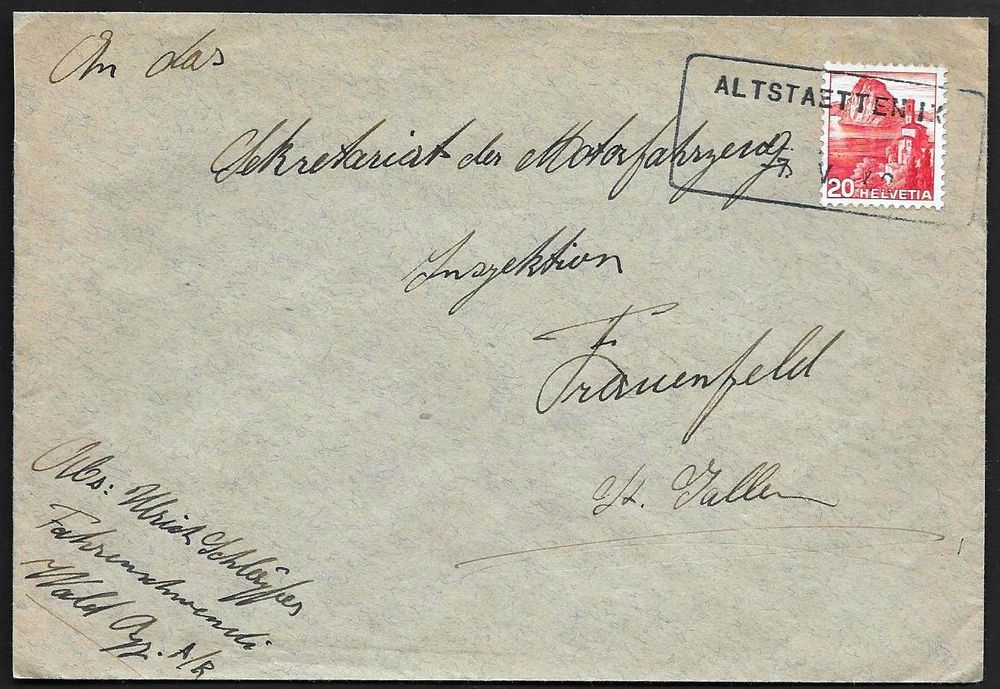 An das
ALTSTAETTEN
20 HELVETIA
Sekretariat der Motorfahrzeug
Inspektion
Frauenfeld
St. Gallen
Abs: Ulrich Schläpfer
Fahrenschwendi
Wald App. A/R